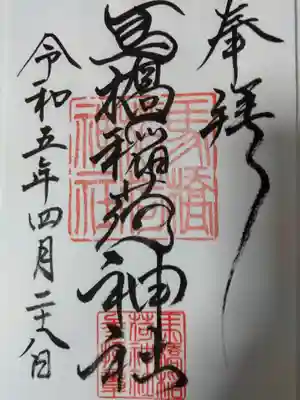 奉拝
馬橋稲荷神社
令和五年四月二十八日
馬橋
稲荷
神社